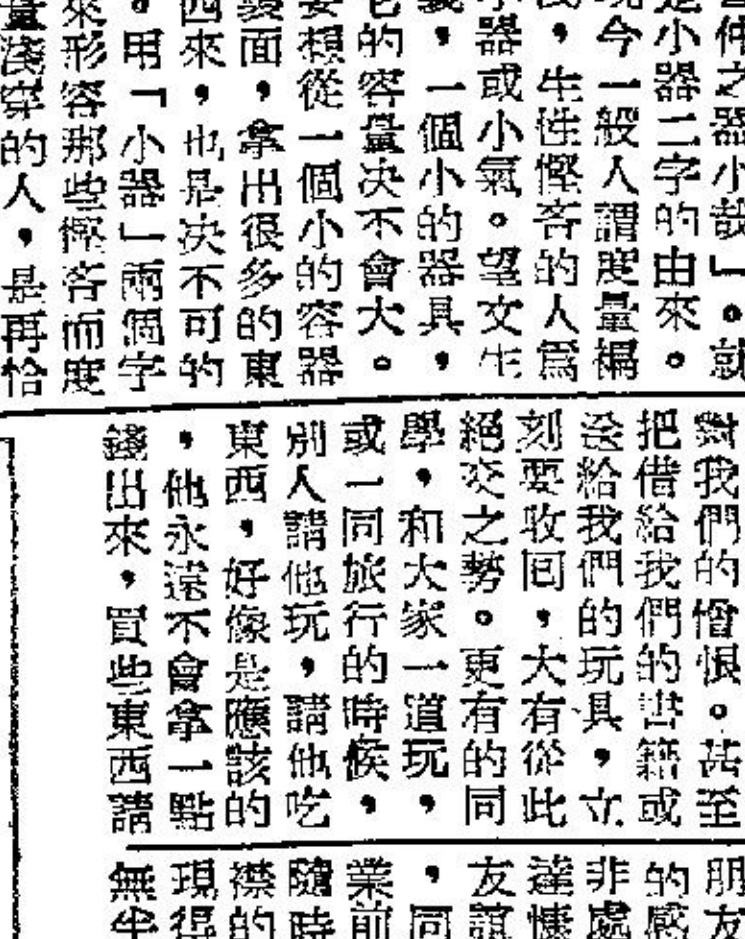 仲之器小哉」。就
是小器二字的由來。
現今一般人謂度量褊
淺,生性慳吝的人爲
小器或小氣。望文生
義,一個小的器具,
它的容量决不會大。
要想從一個小的容器
裏面,拿出很多的東
西來,也是决不可的
。用「小器」兩個字
來形容那些慳吝而度
量淺窄的人,是再恰
對我們的憎恨。甚至
把借給我們的書籍或
送給我們的玩具,立
刻要收囘,大有從此
絕交之勢。更有的同
學,和大家一道玩,
或一同旅行的時候,
別人請他玩,請他吃
東西,好像是應該的
,他永遠不會拿一點
錢出來,買些東西請
朋友
的感
非處
達慷
友誼
,同
業前
隨時
襟的
現得
無半